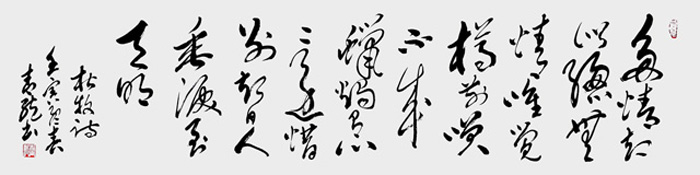 多情却
似總無
情唯覺
樽前笑
不成
蠟燭有心
還惜
别替人
垂淚到
天明
杜牧诗
壬寅春
书